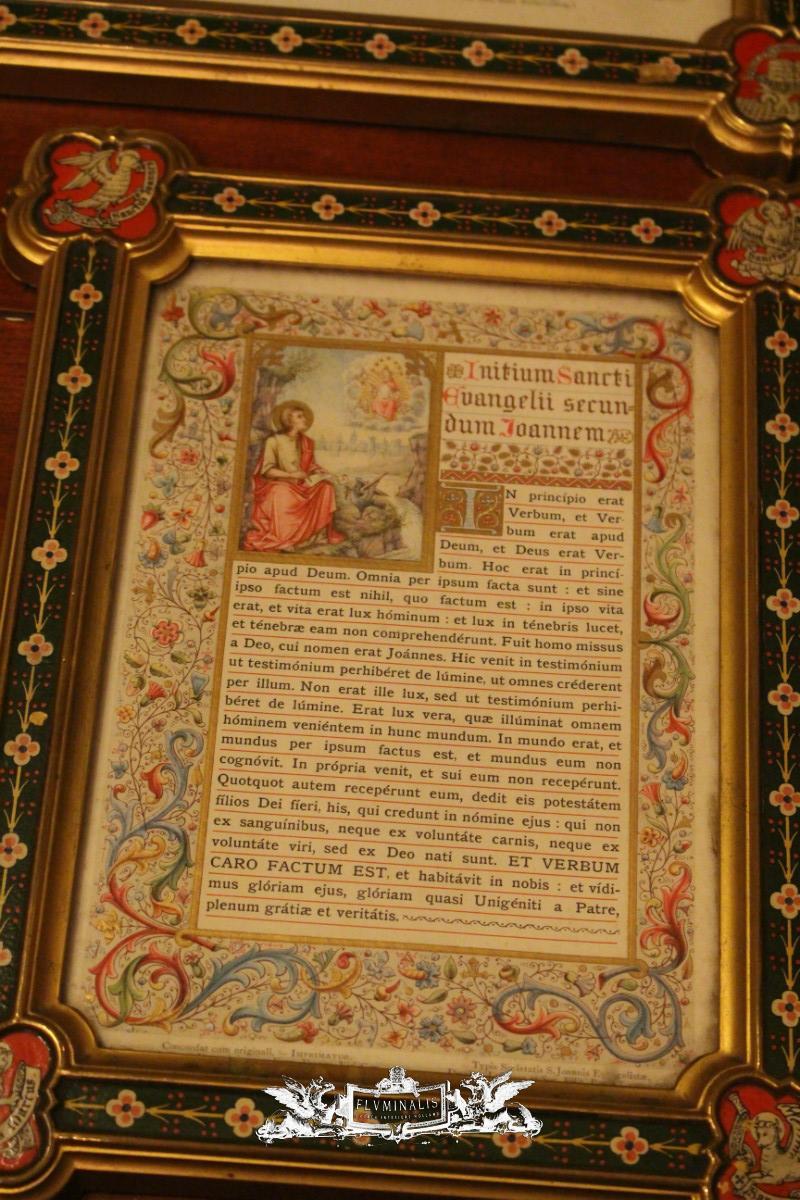 Initium Sancti
Evangelii secun-
dum Joannem
IN princípio erat
Verbum, et Ver-
bum erat apud
Deum, et Deus erat Ver-
bum. Hoc erat in princí-
pio apud Deum. Omnia per ipsum facta sunt : et sine
ipso factum est nihil, quo factum est : in ipso vita
erat, et vita erat lux hóminum : et lux in ténebris lucet,
et ténebræ eam non comprehendérunt. Fuit homo missus
a Deo, cui nomen erat Joánnes. Hic venit in testimónium
ut testimónium perhibéret de lúmine, ut omnes créderent
per illum. Non erat ille lux, sed ut testimónium perhi-
béret de lúmine. Erat lux vera, quæ illúminat omnem
hóminem veniéntem in hunc mundum. In mundo erat, et
mundus per ipsum factus est, et mundus eum non
cognóvit. In própria venit, et sui eum non recepérunt.
Quotquot autem recepérunt eum, dedit eis potestátem
fílios Dei fíeri, his, qui credunt in nómine ejus : qui non
ex sanguínibus, neque ex voluntáte carnis, neque ex
voluntáte viri, sed ex Deo nati sunt. ET VERBUM
CARO FACTUM EST, et habitávit in nobis : et vídi-
mus glóriam ejus, glóriam quasi Unigéniti a Patre,
plenum grátiæ et veritátis.
Concordat cum originali. – IMPRIMATUR
Typis Societatis S. Joannis Evangelistæ
FLVMINALIS